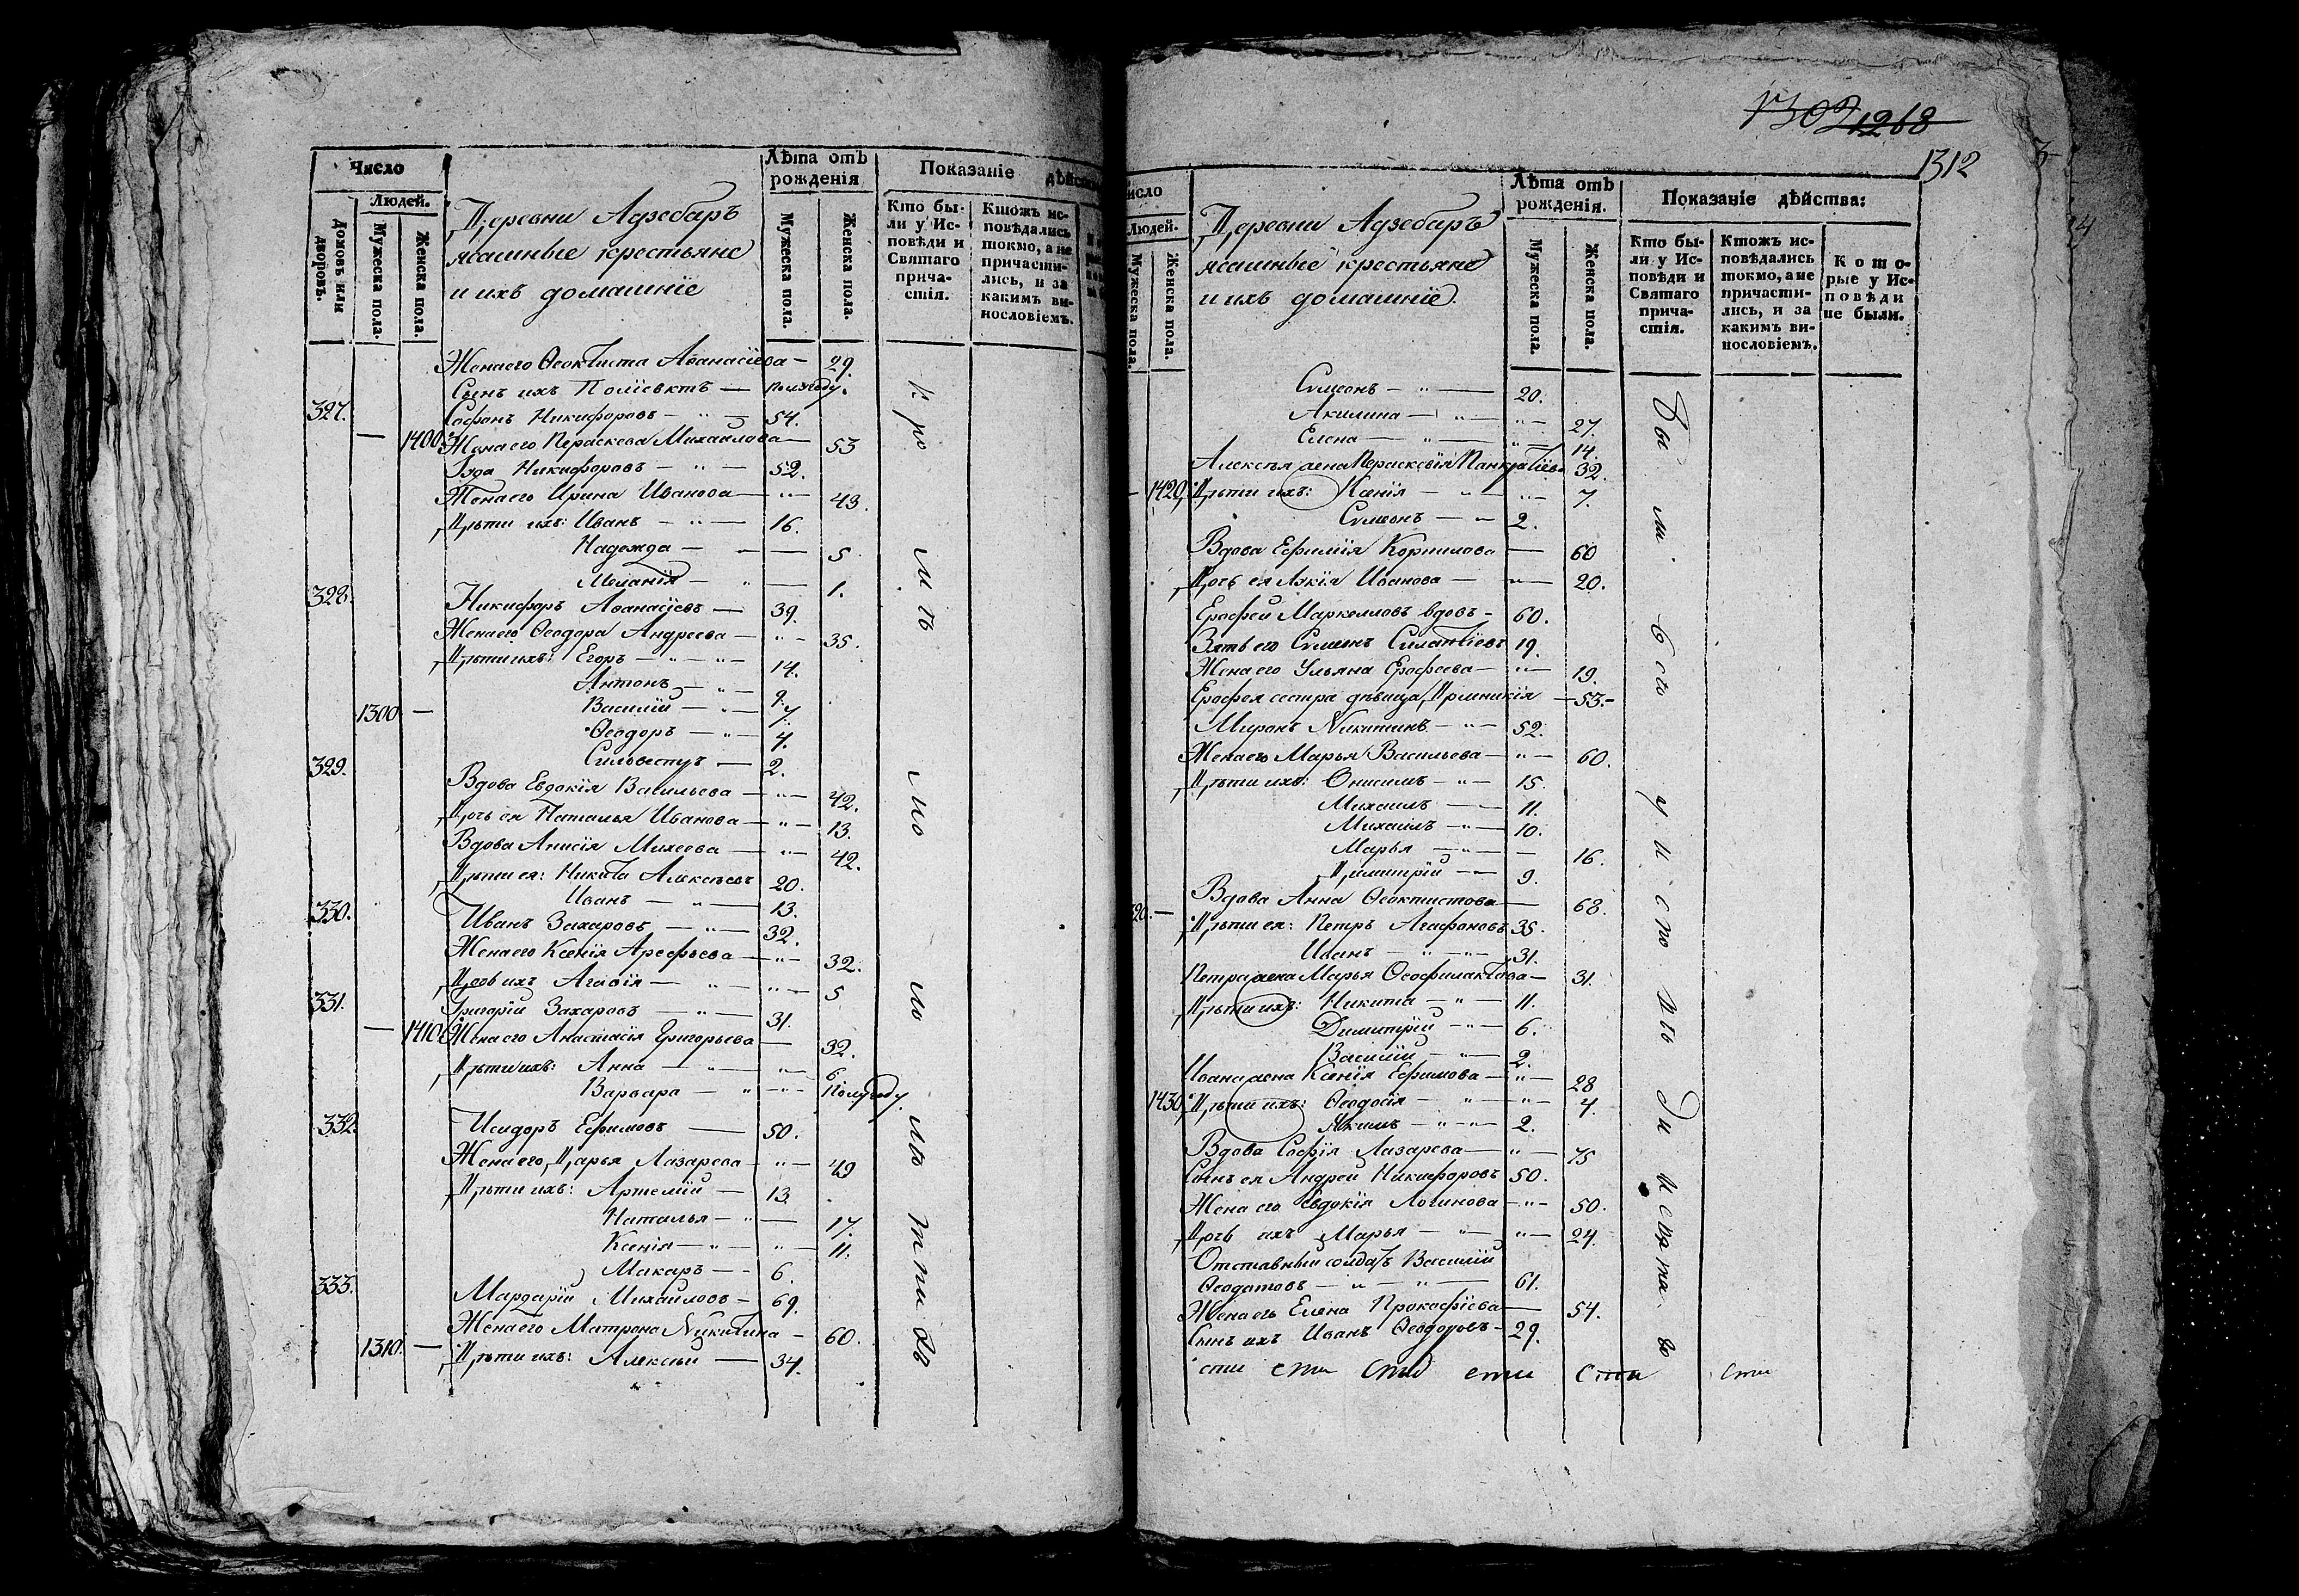 Число
Людей.
Домовъ или дворовъ.
Мужеска пола.
Женска пола.
Деревни Адзебаръ
ясашные крестьяне
и ихъ домашніе
Лѣта отъ рожденія
Мужеска пола.
Женска пола.
Показаніе
Кто были у Исповѣди и Святаго причастія.
Ктожъ исповѣдались токмо, а не причастились, и за какимъ винословіемъ.
Жена его Ѳеоктиста Аѳанасіева — 29.
Сынъ ихъ Поліевктъ — полугоду.
327. Софонъ Никифоровъ — 54.
— 1400 Жена его Пераскева Михайлова — 53
Никифоровъ — 52.
Жена его Ирина Иванова — 43.
Дѣти ихъ: Иванъ — 16.
Надежда — 5
Меланія — 1.
328. Никифоръ Аѳанасіевъ — 39.
Жена его Ѳеодора Андреева — 35.
Дѣти ихъ: Егоръ — 14.
Антонъ — 9.
1300 — Василій — 7.
Ѳеодоръ — 4.
Силовестръ — 2.
329. Вдова Евдокія Васильева — 42.
Дочь ея Наталья Иванова — 13.
Вдова Анисія Михеева — 42.
Дѣти ея: Никита Алексѣевъ 20.
Иванъ — 13.
330. Иванъ Захаровъ — 32.
Жена его Ксенія Арефьева — 32.
Дочь ихъ Агафія — 5
331. Григорій Захаровъ — 31.
— 1410 Жена его Анастасія Григорьева — 32.
Дѣти ихъ: Анна — 6
Варвара — полугоду.
332. Исидоръ Ефимовъ — 50.
Жена его Дарья Лазарева — 49
Дѣти ихъ: Артемій — 13
Наталья — 17.
Ксенія — 11.
Макаръ — 6.
333. Мардарій Михайловъ — 69.
Жена его Матрона Никитина — 60.
1310. — Дѣти ихъ: Алексѣй — 34.
1268
1312
Число
Людей.
Мужеска пола.
Женска пола.
Деревни Адзебаръ
ясашные крестьяне
и ихъ домашніе.
Лѣта отъ рожденія.
Мужеска пола.
Женска пола.
Показаніе дѣйства:
Кто были у Исповѣди и Святаго причастія.
Ктожъ исповѣдались токмо, а не причастились, и за какимъ винословіемъ.
Которые у Исповѣди не были.
Сумеонъ — 20.
Акилина — 27.
Елена — 14.
Алексѣя жена Пераскевія Панкратіева 32.
— 1420 Дѣти ихъ: Ксенія — 7.
Сумеонъ — 2.
Вдова Ефимія Корнилова — 60
Дочь ея Лукія Иванова — 20.
Ерофей Маркелловъ вдовъ — 60.
Зять его Сумеонъ Силантіевъ 19.
Жена его Ульяна Ерофеева — 19.
Ерофея сестра дѣвица Домникія — 53. —
Миронъ Никитинъ — 52.
Жена его Марья Васильева — 60.
Дѣти ихъ: Онисимъ — 15.
Михаилъ — 11.
Михаилъ — 10.
Марья — 16.
Димитрій — 9.
Вдова Анна Ѳеоктистова — 68.
Дѣти ея: Петръ Агафоновъ 35.
Иванъ — 31.
Петра жена Марья Ѳеофилактова — 31.
Дѣти ихъ: Никита — 11.
Димитрій — 6.
Василій — 2.
Ивана жена Ксенія Ефимова — 28
1430 Дѣти ихъ: Ѳеодосія — 4.
Якимъ — 2.
Вдова Софія Лазарева — 75
Сынъ ея Андрей Никифоровъ 50.
Жена его Евдокія Логинова — 50.
Дочь ихъ Марья — 24.
Отставный солдатъ Василій
Ѳеодотовъ — 61.
Жена его Елена Прокофіева — 54.
Сынъ ихъ Иванъ Ѳеодоровъ — 29.
сти сти сти сти сти сти